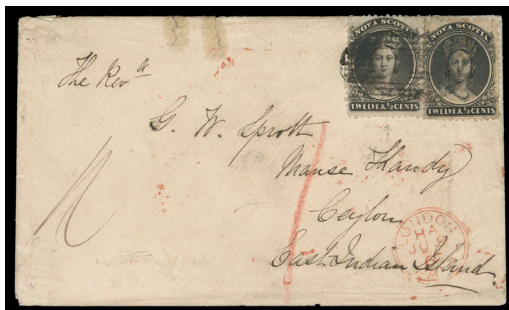 NOVA SCOTIA
TWELVE & ½ CENTS
NOVA SCOTIA
TWELVE & ½ CENTS
The Revd
G. W. Sprott
Manse Kandy
Ceylon
East Indian Island
LONDON
HA
JU